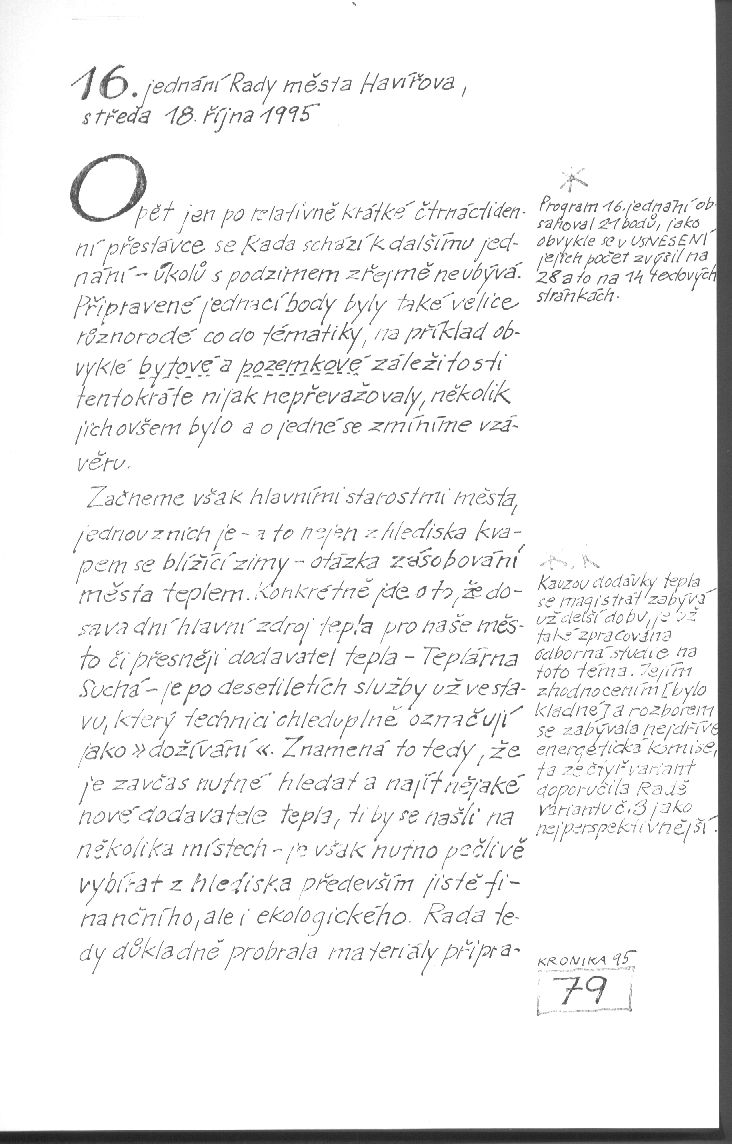 16. jednání Rady města Havířova,
středa 18. října 1995
Opět jen po relativně krátké čtrnáctiden-
ní přestávce se Rada schází k dalšímu jed-
nání – úkolů s podzimem zřejmě neubývá.
Připravené jednací body byly také velice
různorodé co do tématiky, na příklad ob-
vyklé bytové a pozemkové záležitosti
tentokráte nijak nepřevažovaly, několik
jich ovšem bylo a o jedné se zmíníme vzá-
věru.
Začneme však hlavními starostmi města,
jednou z nich je – a to nejen z hlediska kva-
pem se blížící zimy – otázka zásobování
města teplem. Konkrétně jde o to, že do-
savadní hlavní zdroj tepla pro naše měs-
to či přesněji dodavatel tepla – Teplárna
Suchá – je po desetiletích služby už ve sta-
vu, který technici ohleduplně označují
jako »dožívání«. Znamená to tedy, že
je zavčas nutné hledat a najít nějaké
nové dodavatele tepla, ti by se našli na
několika místech – je však nutno pečlivě
vybírat z hlediska především jistě fi-
nančního, ale i ekologického. Rada te-
dy důkladně probrala materiály připra-
Program 16. jednání ob-
sahoval 21 bodů, jako
obvykle se v USNESENÍ
jejich počet zvýšil na
28 a to na 14 textových
stránkách.
Kauzou dodávky tepla
se magistrát zabývá
už delší dobu, je už
také zpracována
odborná studie na
toto téma. Jejím
zhodnocením [bylo
kladné] a rozborem
se zabývala nejdříve
energetická komise,
ta ze čtyř variant
doporučila Radě
variantu č. 3 jako
nejperspektivnější.
KRONIKA 95
79